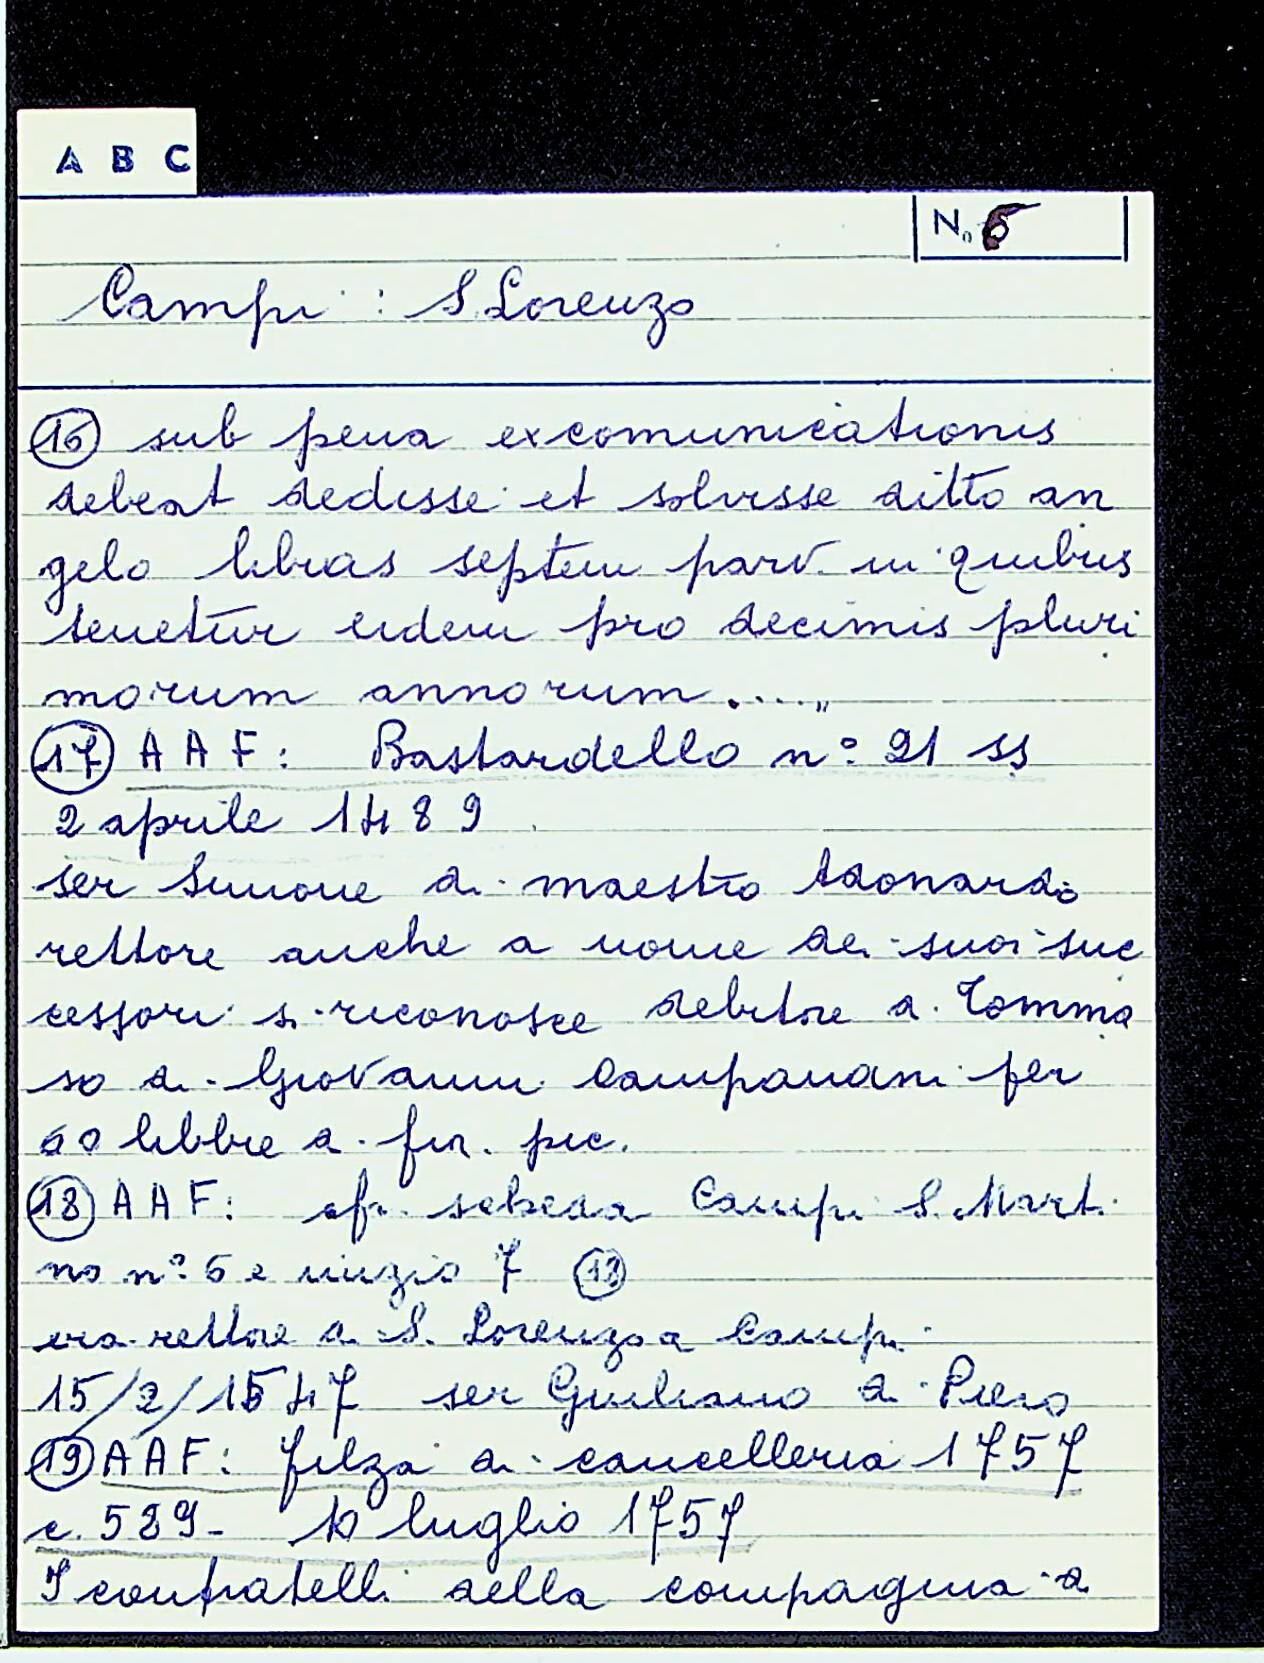 A B C
N. 6
Campi : S. Lorenzo
16 sub pena excomunicationis
debeat dedisse et solvisse ditto an
gelo libras septem parv. in quibus
tenetur eidem pro decimis pluri
morum annorum....„
17 A A F : Bastardello n° 21 ss
2 aprile 1489
ser Simone di maestro Leonardo
rettore anche a nome dei suoi suc
cessori si riconosce debitore di Tomma
so di Giovanni Campanani per
60 libbre di fior. pic.
18 A A F : cfr. scheda Campi S. Marti
no n° 6 e inizio 7 18
era rettore di S. Lorenzo a Campi
15/2/1547 ser Giuliano di Piero
19 A A F : filza di cancelleria 1757
c. 589 - 10 luglio 1757
I confratelli della compagnia di